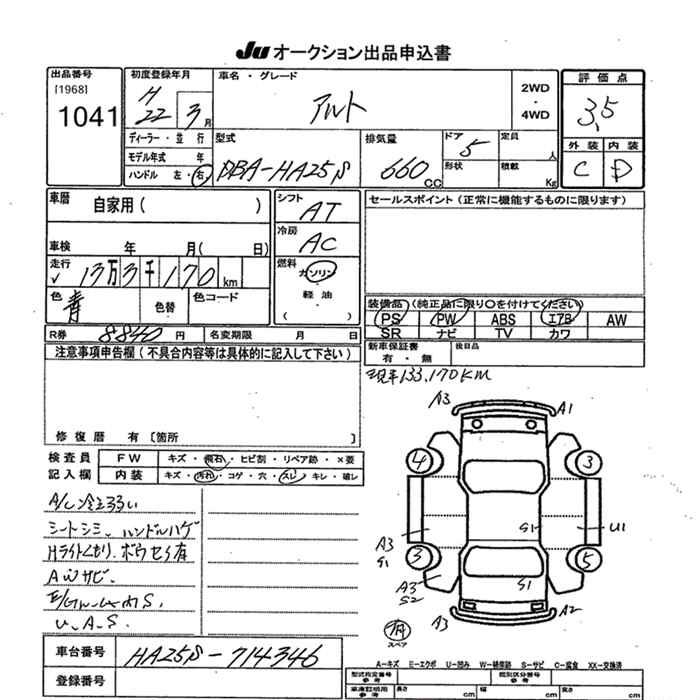 Ju オークション出品申込書
出品番号 初度登録年月 車名・グレード 評価点
[1968] H 2WD
1041 22 3月 アルト ・ 3.5
4WD
ディーラー・並行 型式 排気量 ドア 定員 外装 内装
モデル年式 年 5 人
ハンドル 左・右 DBA-HA25S 660cc 形状 積載 Kg C D
車歴 自家用( ) シフト AT セールスポイント(正常に機能するものに限ります)
車検 年 月( 日) 冷房 AC
走行 13万3千170km 燃料 ガソリン
軽油
色 青 色替 色コード ・( ) 装備品(純正品に限り○を付けてください)
PS PW ABS エアB AW
R券 8840円 名変期限 月 日 SR ナビ TV カワ
注意事項申告欄(不具合内容等は具体的に記入して下さい) 新車保証書 後日品
有・無
現車133,170KM
修復歴 有〔箇所
検査員 FW キズ・飛石・ヒビ割・リペア跡・×要
記入欄 内装 キズ・汚れ・コゲ・穴・スレ・キレ・破レ
A3 A1
4 3
A/C冷え弱い
シートシミ、ハンドルハゲ
Hライトくもり、ボウセイ有
S1 U1
A3
S1
3 5
AWサビ、
A3
S2
S1
U、A、S、
A3 A2
スペア
車台番号 HA25S-714346
A-キズ E-エクボ U-凹み W-補修跡 S-サビ C-腐食 XX-交換済
登録番号 型式指定番号 参考 類別区分番号 参考
車庫証明用 参考 長さ cm 幅 cm 高さ cm